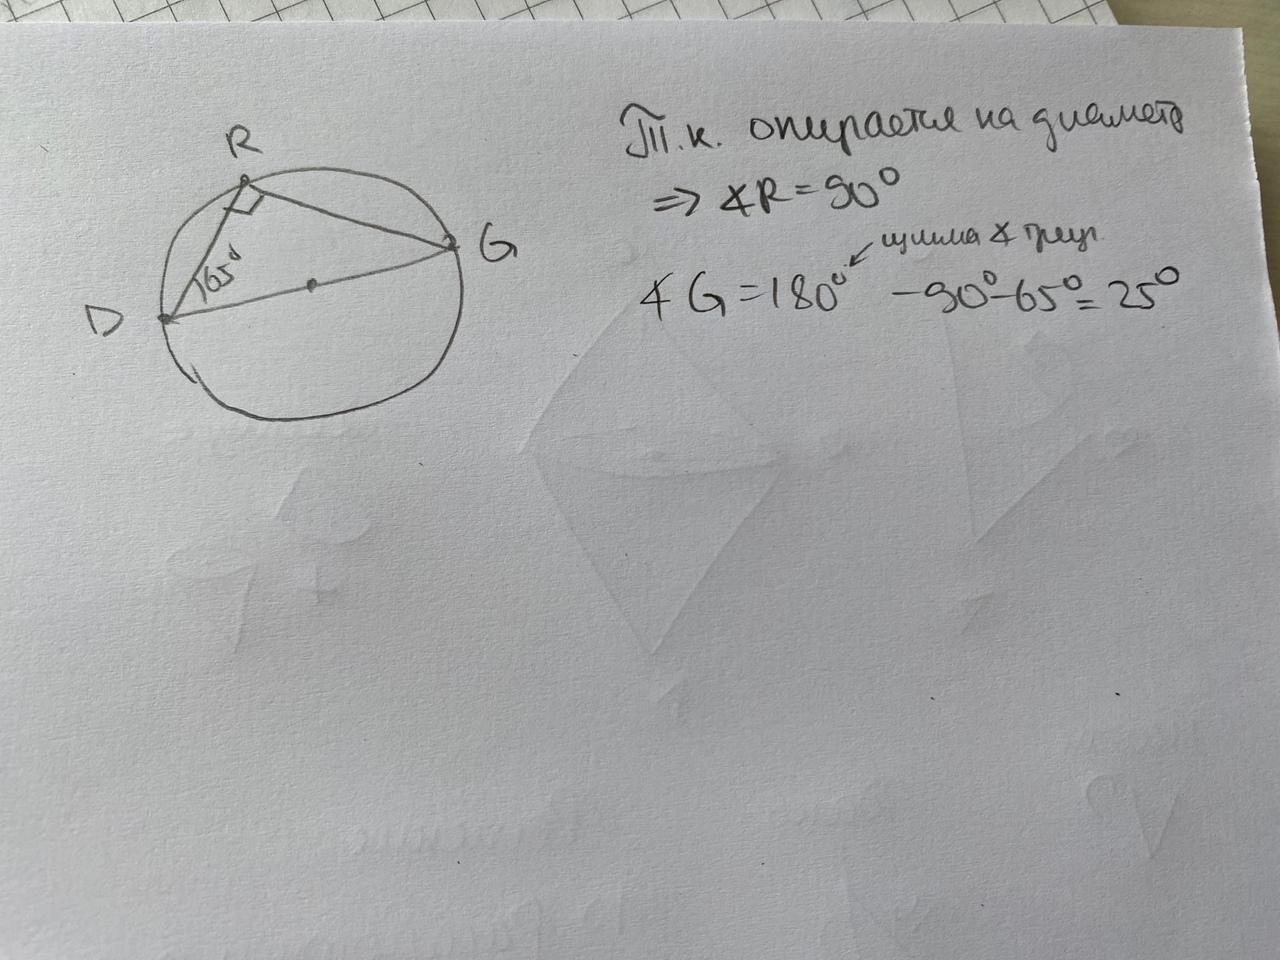 R
G
D
65°
Т.к. опирается на диаметр
=> ∡R = 90°
сумма ∡ треуг.
∡ G = 180° - 90° - 65° = 25°